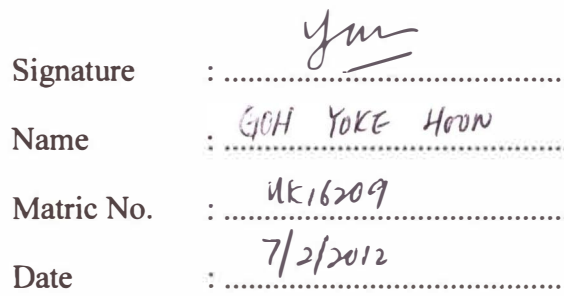 Signature :
Name : GOH YOKE HOON
Matric No. : UK16209
Date : 7/2/2012